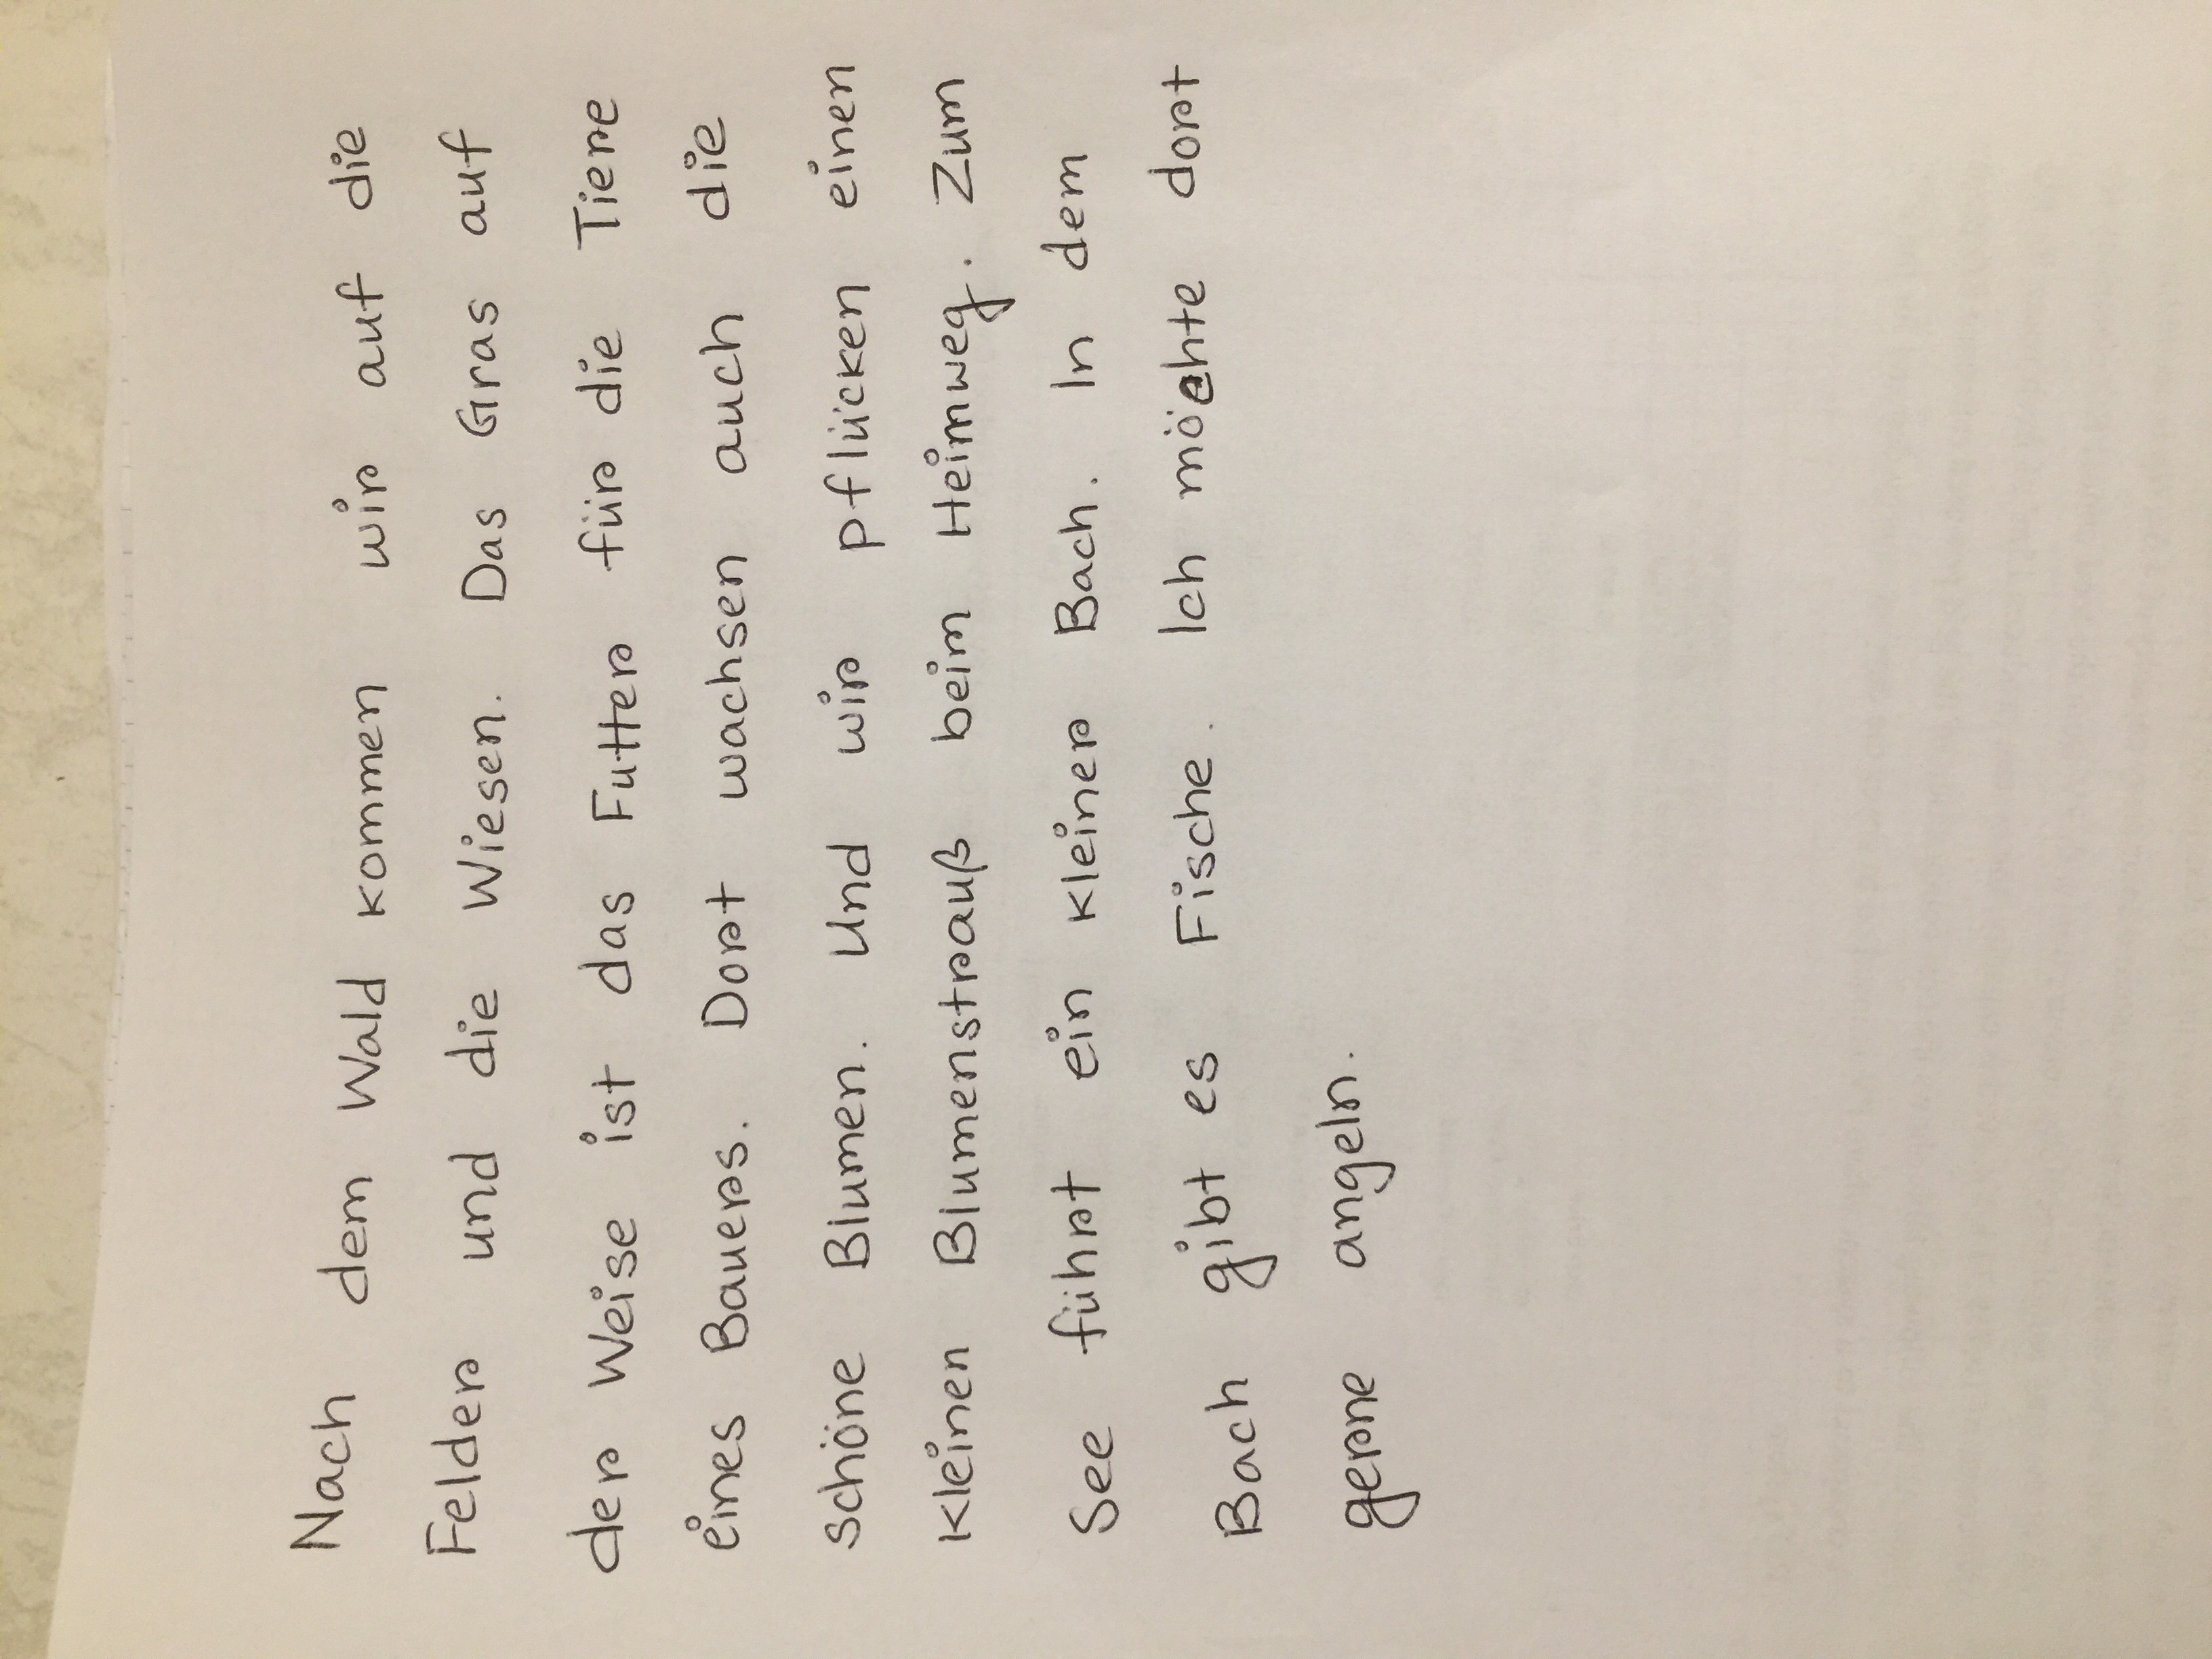 Nach dem Wald kommen wir auf die
Felder und die Wiesen. Das Gras auf
der Weise ist das Futter für die Tiere
eines Bauers. Dort wachsen auch die
schöne Blumen. Und wir pflücken einen
kleinen Blumenstrauß beim Heimweg. Zum
See führt ein kleiner Bach. In dem
Bach gibt es Fische. Ich möchte dort
gerne angeln.